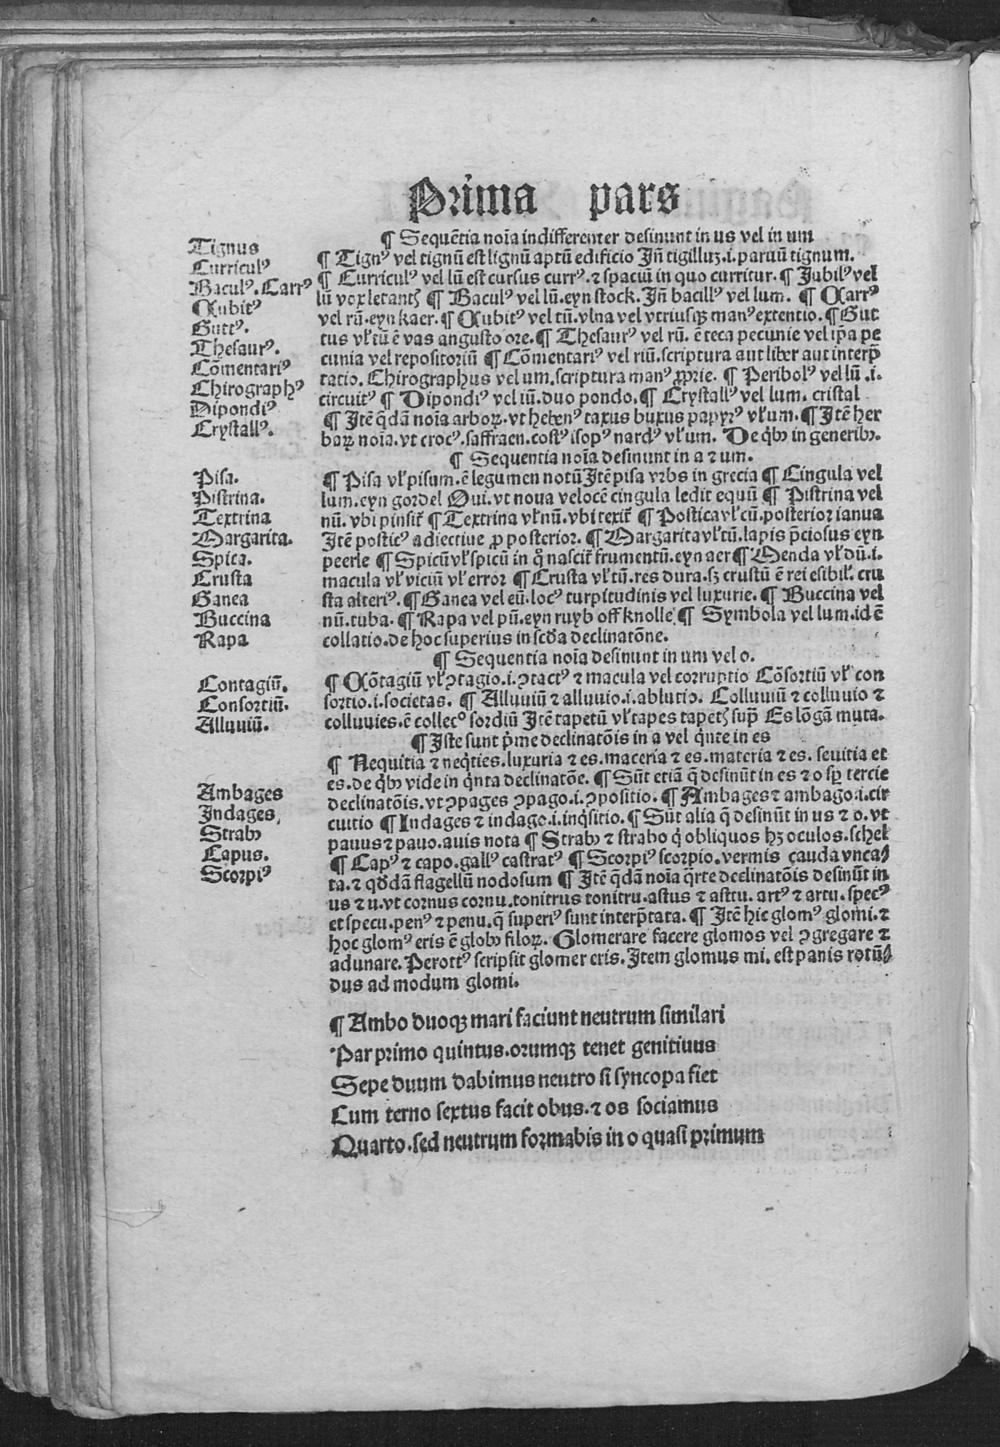 Prima pars
¶ Sequẽtia noĩa indifferenter desinunt in us vel in um
Tignus
Curriculꝰ
Baculꝰ. Carrꝰ
Cubitꝰ
Guttꝰ.
Thesaurꝰ.
Cõmentariꝰ
Chirographꝰ
Dipondiꝰ
Crystallꝰ.
¶ Tignꝰ vel tignũ est lignũ aptũ edificio Jñ tigilluʒ.i.paruũ tignum.
¶ Curriculꝰ vel lũ est cursus currꝰ.⁊ spaciũ in quo curritur. ¶ Jubilꝰ vel
lũ vox letantꝭ ¶ Baculꝰ vel lũ.eyn stock. Jñ bacillꝰ vel lum. ¶ Carrꝰ
vel rũ.eyn kaer. ¶ Cubitꝰ vel tũ.vlna vel vtriusqꝫ manꝰ extentio. ¶ Gut
tus vľ tũ ẽ vas angusto ore. ¶ Thesaurꝰ vel rũ. ẽ teca pecunie vel ip̃a pe
cunia vel repositoriũ ¶ Cõmentariꝰ vel riũ.scriptura aut liber aut interp̃
tatio. Chirographus vel um.scriptura manꝰ ꝓprie. ¶ Peribolꝰ vel lũ .i.
circuitꝰ ¶ Dipondiꝰ vel iũ.duo pondo. ¶ Crystallꝰ vel lum. cristal
¶ Jtẽ q̃dã noĩa arboꝝ.vt hebenꝰ taxus buxus papyrꝰ vľ um. ¶ Jtẽ her
baꝝ noĩa.vt crocꝰ.saffraen.costꝰ isopꝰ nardꝰ vľ um. De q̃bꝫ in generibꝫ.
¶ Sequentia noĩa desinunt in a ⁊ um.
Pisa.
Pistrina.
Textrina
Margarita.
Spica.
Crusta
Ganea
Buccina
Rapa
¶ Pisa vľ pisum.ẽ legumen notũ Jtẽ pisa vrbs in grecia ¶ Cingula vel
lum.eyn gordel Oui.vt noua velocẽ cingula ledit equũ ¶ Pistrina vel
nũ. vbi pinsit᷑ ¶ Textrina vľ nũ.vbi texit᷑ ¶ Postica vľ cũ.posterior ianua
Jtẽ posticꝰ adiectiue ꝓ posterior. ¶ Margarita vľ tũ.lapis p̃ciosus eyn
peerle ¶ Spicũ vľ spicũ in q̊ nascit᷑ frumentũ.eyn aer ¶ Menda vľ dũ.i.
macula vľ viciũ vľ error ¶ Crusta vľ tũ.res dura.sꝫ crustũ ẽ rei esibiľ. cru
sta alteriꝰ. ¶ Ganea vel eũ.locꝰ turpitudinis vel luxurie. ¶ Buccina vel
nũ.tuba. ¶ Rapa vel pũ.eyn ruyb off knolle ¶ Symbola vel lum.id ẽ
collatio.de hoc superius in scđa declinatõne.
¶ Sequentia noĩa desinunt in um vel o.
Contagiũ.
Consortiũ.
Alluuiũ.
¶ Cõtagiũ vľ ꝯtagio.i.ꝯtactꝰ ⁊ macula vel corruptio Cõsortiũ vľ con
sortio.i.societas. ¶ Alluuiũ ⁊ alluuio.i.ablutio. Colluuiũ ⁊ colluuio ⁊
colluuies.ẽ collec° sordiũ Jtẽ tapetũ vľ tapes tapetꝭ sup̃ Es lõgã muta.
¶ Jste sunt p̃me declinatõis in a vel q̃nte in es
¶ Nequitia ⁊ neq̃ties.luxuria ⁊ es.maceria ⁊ es.materia ⁊ es. seuitia et
es.de q̃bꝫ vide in q̃nta declinatõe. ¶ Sũt etiã q̃ desinũt in es ⁊ o sꝑ tercie
Ambages
Jndages
Strabꝫ
Capus.
Scorpiꝰ
declinatõis.vt ꝯpages ꝯpago.i.ꝯpositio. ¶ Ambages ⁊ ambago.i.cir
cuitio ¶ Jndages ⁊ indago.i.inq̃sitio. ¶ Sũt alia q̃ desinũt in us ⁊ o.vt
pauus ⁊ pauo.auis nota ¶ Strabꝫ ⁊ strabo q̃ obliquos hꝫ oculos.schel
¶ Capꝰ ⁊ capo.gallꝰ castratꝰ ¶ Scorpiꝰ scorpio.vermis cauda vnca
ta.⁊ qđdã flagellũ nodosum ¶ Jtẽ q̃dã noĩa q̃rte declinatõis desinũt in
us ⁊ u.vt cornus cornu.tonitrus tonitru.astus ⁊ astu. artꝰ ⁊ artu. specꝰ
et specu.penꝰ ⁊ penu.q̃ superiꝰ sunt interp̃tata. ¶ Jtẽ hic glomꝰ glomi.⁊
hoc glomꝰ eris ẽ globꝫ filoꝝ. Glomerare facere glomos vel ꝯgregare ⁊
adunare. Perottꝰ scripsit glomer eris. Jtem glomus mi. est panis rotũ
dus ad modum glomi.
¶ Ambo duoqꝫ mari faciunt neutrum similari
Par primo quintus.orumqꝫ tenet genitiuus
Sepe duum dabimus neutro si syncopa fiet
Cum terno sextus facit obus.⁊ os sociamus
Quarto.sed neutrum formabis in o quasi primum